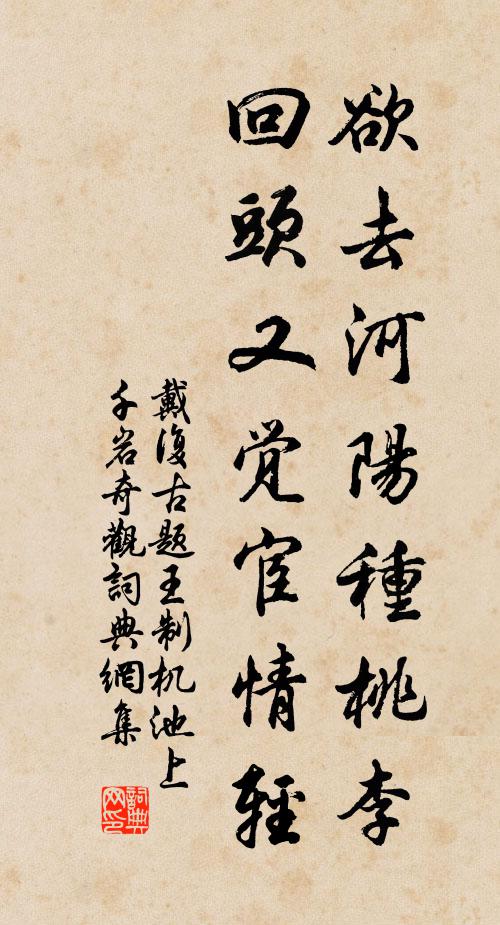 欲去河陽種桃李
回頭又覚宦情輕
戴復古题王制机池上
千岩奇觀詞典網集
詞典网印